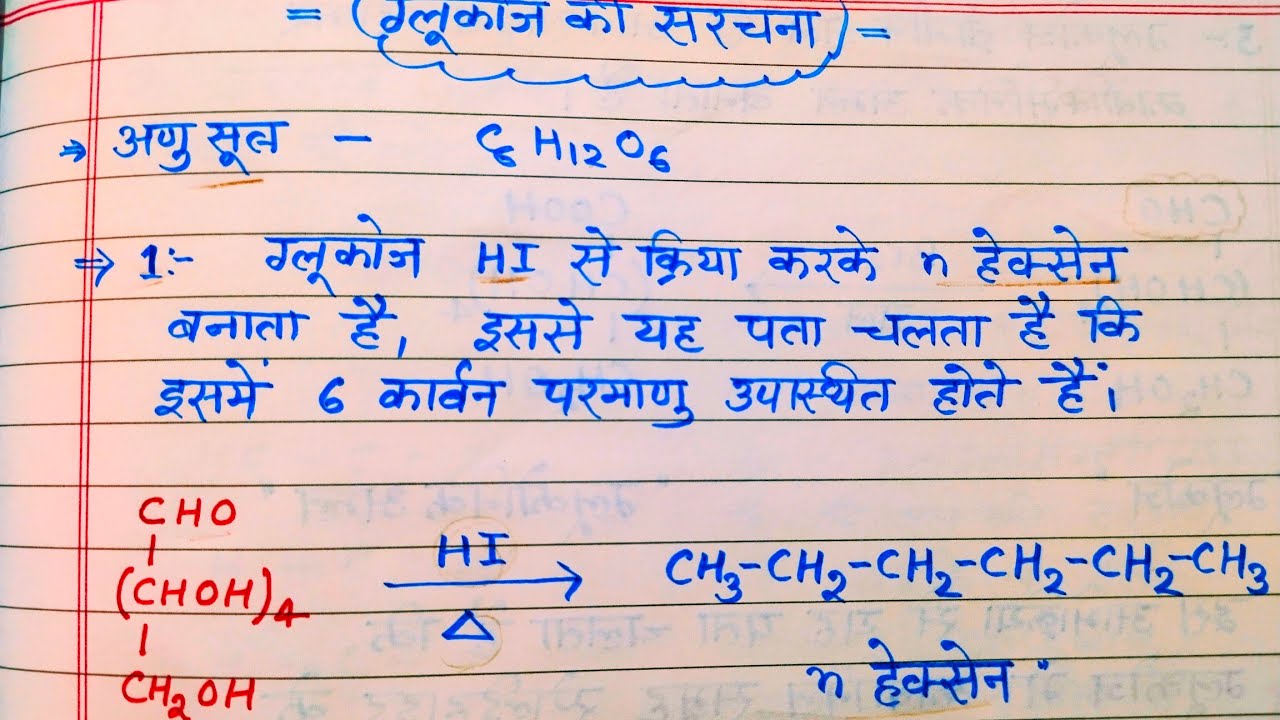 = (ग्लूकोज की संरचना) =
⇒ अणु सूत्र - C6H12O6
⇒ 1:- ग्लूकोज HI से क्रिया करके n हेक्सेन
बनाता है, इससे यह पता चलता है कि
इसमें 6 कार्वन परमाणु उपास्थित होते हैं।
CHO
(CHOH)4
CH2OH
HI
Δ
CH3-CH2-CH2-CH2-CH2-CH3
n हेक्सेन